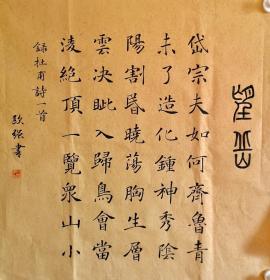 望岳
岱宗夫如何齊魯青
未了造化鍾神秀陰
陽割昏曉蕩胸生層
雲決眦入歸鳥會當
淩絕頂一覽衆山小
録杜甫詩一首
書